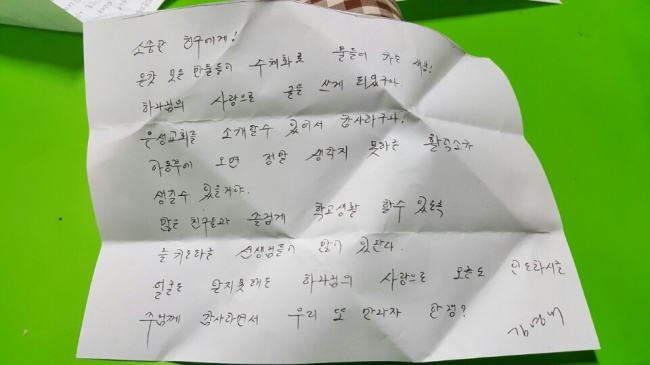 소중한 친구에게!
온갖 모든 만물들이 수채화로 물들어 가는 계절!
하나님의 사랑으로 글을 쓰게 되었구나.
은성교회를 소개할수 있어서 감사하구나!
아동부에 오면 정말 생각지 못하는 활력소가
생길수 있을거야.
많은 친구들과 즐겁게 학교생활 할수 있도록
늘 기도하는 선생님들이 많이 있단다.
얼굴도 알지못해도 하나님의 사랑으로 오늘도 인도하시는
주님께 감사하면서 우리 또 만나자 안녕?